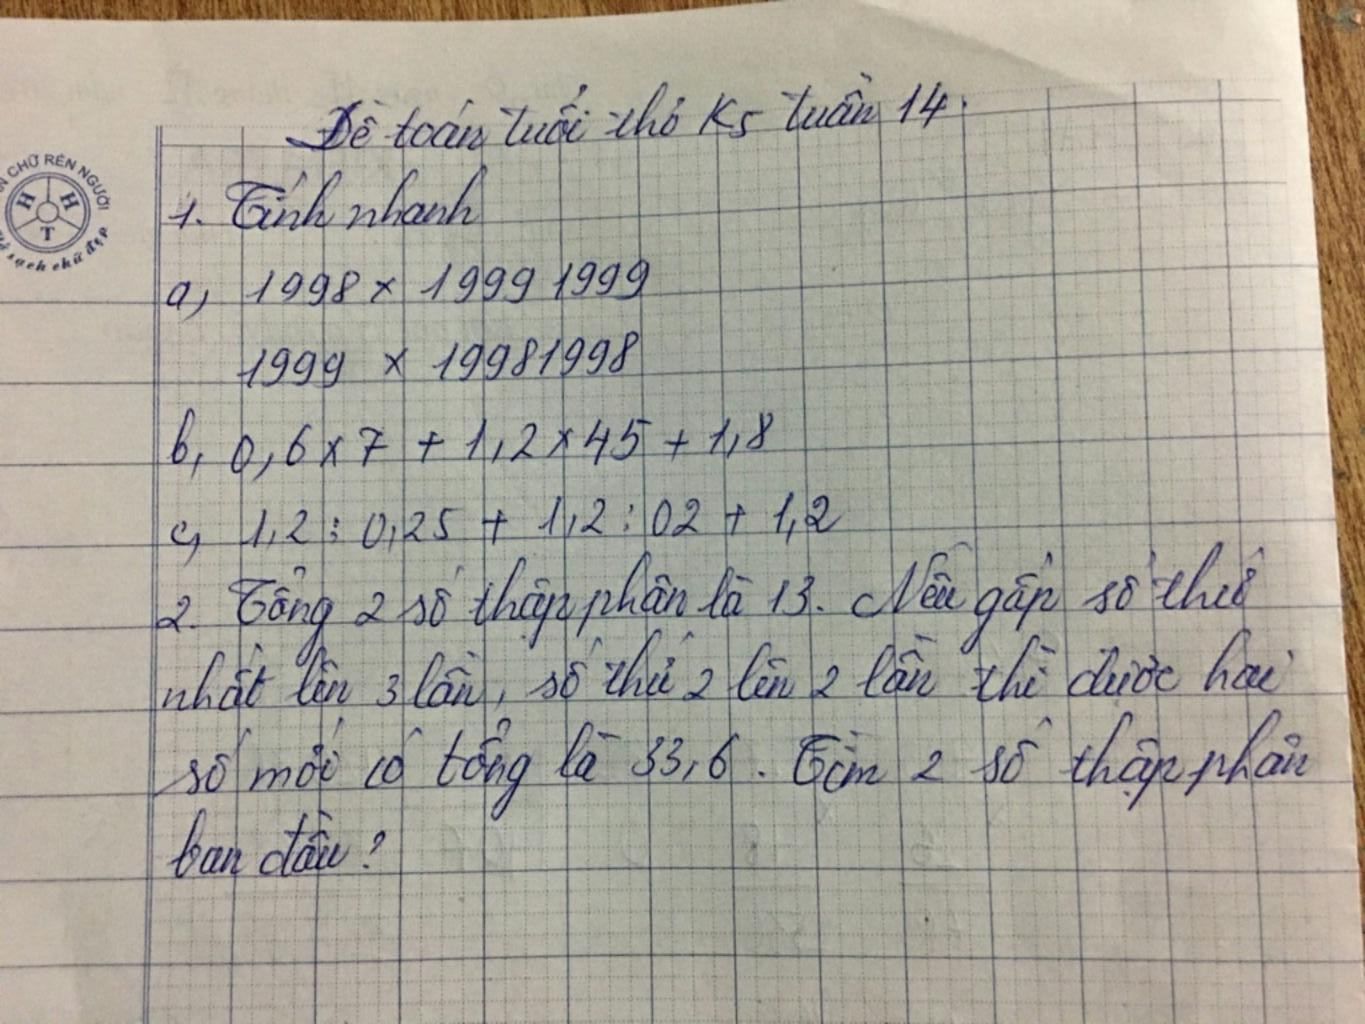 Đề toán tuổi thơ K5 tuần 14.
ÈN CHỮ RÈN NGƯỜI
H H
T
sạch chữ đẹp
1. Tính nhanh
a, 1998 x 1999 1999
1999 x 19981998
b, 0,6 x 7 + 1,2 x 45 + 1,8
c, 1,2 : 0,25 + 1,2 : 02 + 1,2
2. Tổng 2 số thập phân là 13. Nếu gấp số thứ
nhất lên 3 lần, số thứ 2 lên 2 lần thì được hai
số mới có tổng là 33,6. Tìm 2 số thập phân
ban đầu?